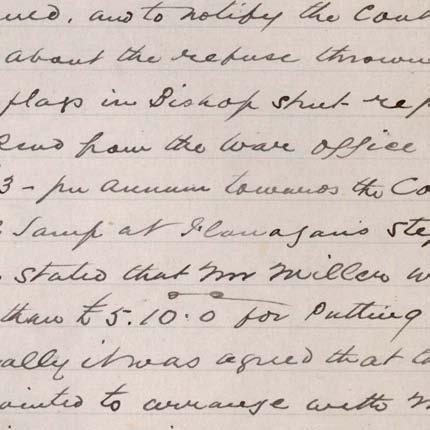 ued. and to notify the Cont
about the refuse thrown
flags in Bishop Street rep
Read from the War Office
3 - per Annum towards the Co
Lamp at Flanagans ste
stated that Mr Millen w
than £5.10.0 for Putting
ally it was agreed that t
ointed to arrange with M